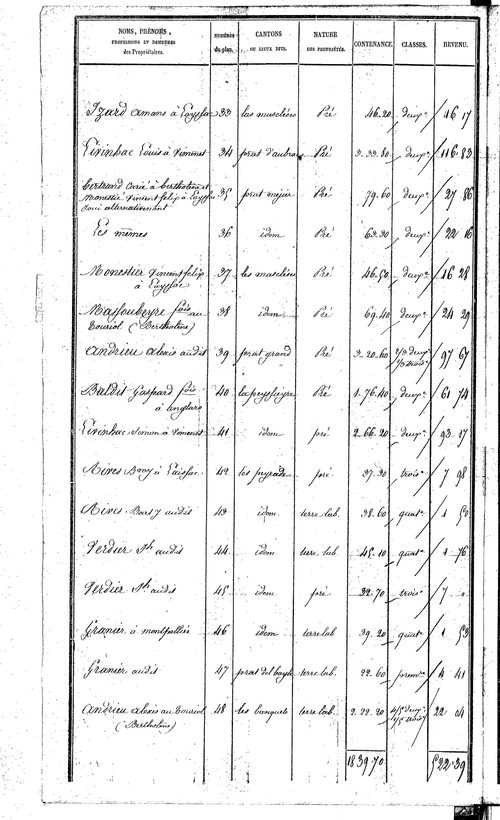 NOMS, PRÉNOMS,
PROFESSIONS ET DEMEURES
des Propriétaires.
NUMÉROS
du plan.
CANTONS
OU LIEUX DITS.
NATURE
DES PROPRIÉTÉS.
CONTENANCE.
CLASSES.
REVENU.
Izard amans à Layssac 33 las masclières Pré 46.20 deuxe 16 17
Livinhac Louis à Vimenet 34 prat d'aubrac Pré 3.33.80 deuxe 116 83
bertrand curé à bertholène et
monestié vincent felip à Layssac 35 prat mejier Pré 79.60 deuxe 27 86
joui alternativement
Les mêmes 36 idem Pré 63.30 deuxe 22 16
Monestier vincent felip 37 les masclières Pré 46.50 deuxe 16 28
à Layssac
Massoubeyre fois au 38 idem Pré 69.40 deuxe 24 29
bouriol (Bertholène)
andrieu alexis audit 39 prat grand Pré 3.20.60 2/3 deuxe 1/3 trois 97 67
Baldit Gaspard fois 40 la peyssieyre Pré 1.76.40 deuxe 61 74
à anglars
Livinhac Simon à Vimenet 41 idem pré 2.66.20 deuxe 93 17
Rives Bmy à Laissac 42 les peyrade pré 37.30 troise 7 98
Rives audit 43 idem terre lab. 38.60 quate 1 50
Verdier Ph audit 44 idem terre lab 45.10 quate 1 76
Verdier Ph audit 45 idem pré 32.70 troise 7 "
Granier à montpellier 46 idem terre lab 39.20 quate 1 53
Granier audit 47 prat del bayle terre lab. 22.60 premre 4 41
andrieu alexis au bouriol 48 les banquets terre lab. 2.22.20 4/5 deuxe 22 04
(Bertholène)
1839.70 522.39